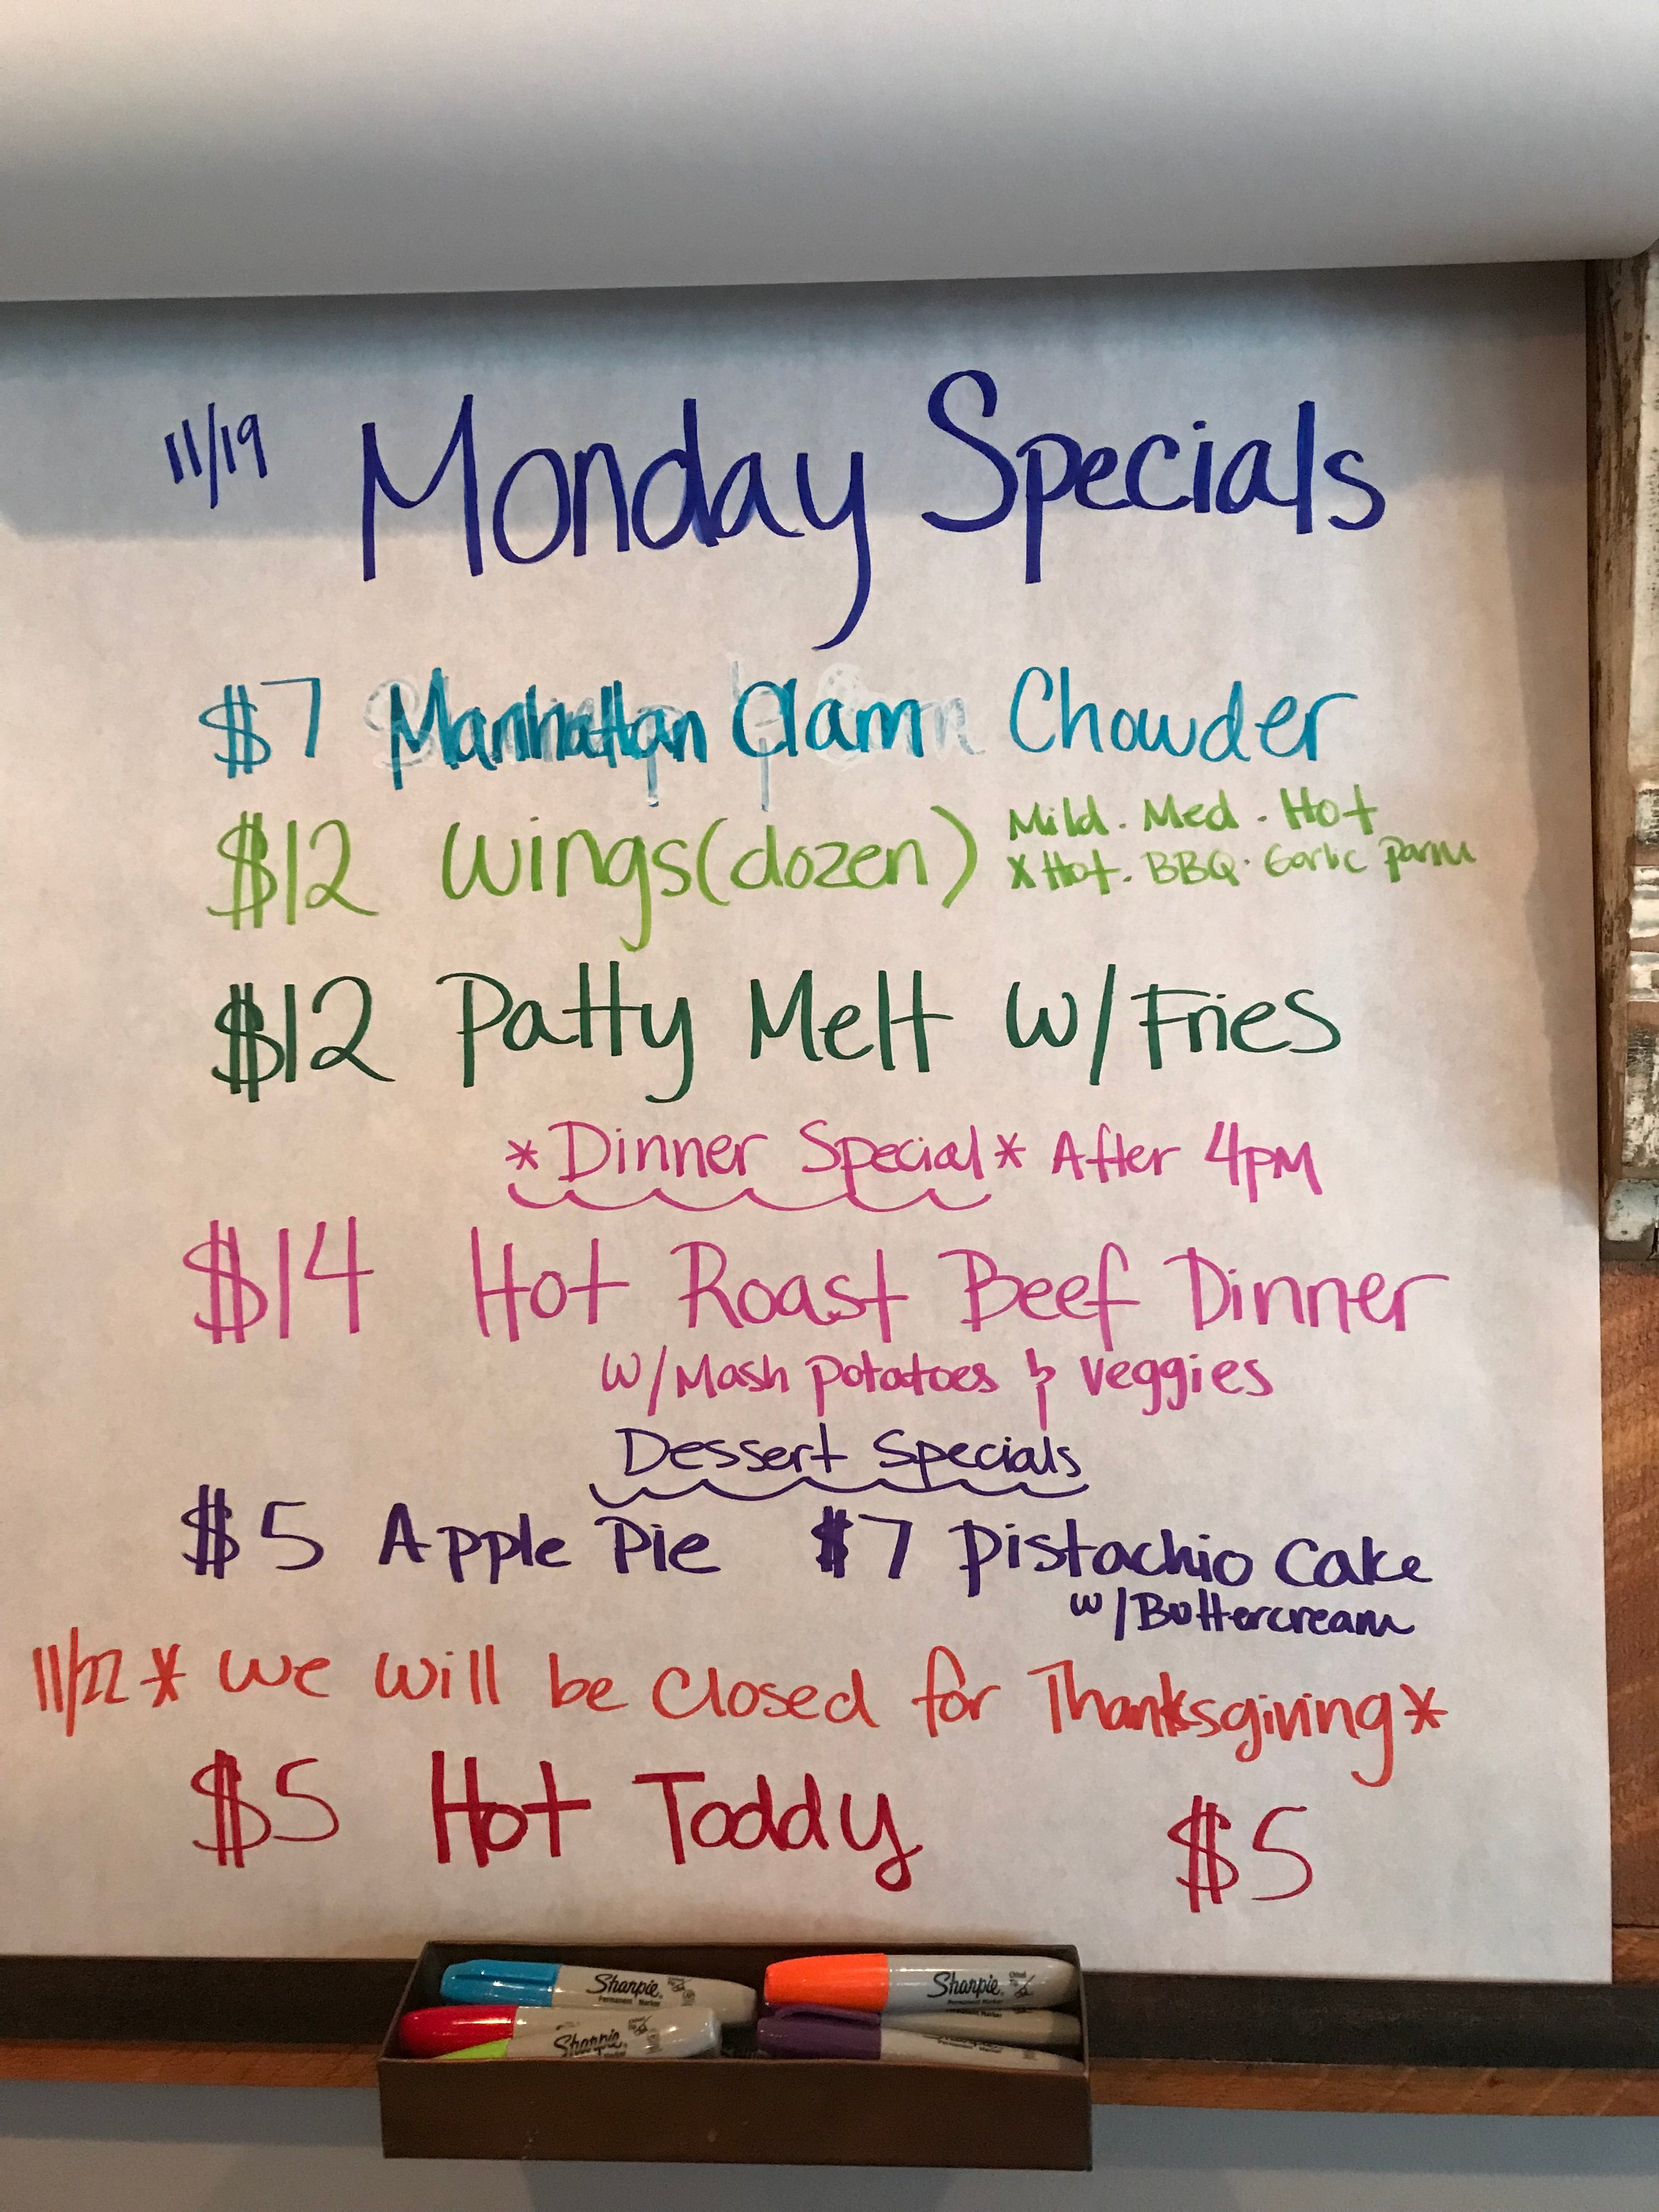 11/19 Monday Specials
$7 Manhattan Clam Chowder
$12 Wings (dozen) Mild. Med. Hot
X Hot. BBQ. Garlic Parm
$12 Patty Melt w/Fries
*Dinner Special* After 4pm
$14 Hot Roast Beef Dinner
w/Mash Potatoes & Veggies
Dessert Specials
$5 Apple Pie $7 Pistachio Cake
w/Buttercream
11/22 * We will be Closed for Thanksgiving *
$5 Hot Toddy $5
Sharpie
Permanent Marker
Sharpie
Permanent Marker
Sharpie